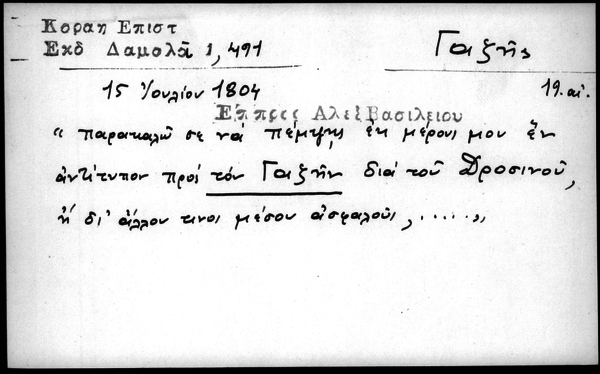 Κοραη Επιστ
Εκδ Δαμαλᾶ 1, 491
Γαζῆς
15 Ἰουλίου 1804
19. αἰ.
Ἐπ προς ΑλεξΒασιλειου
" παρακαλῶ σε νά πέμψῃς ἐκ μέρους μου ἕν
ἀντίτυπον πρός τόν Γαζῆν διά τοῦ Δροσινοῦ,
ἤ δι' ἄλλου τινος μέσου ἀσφαλοῦς, ....."